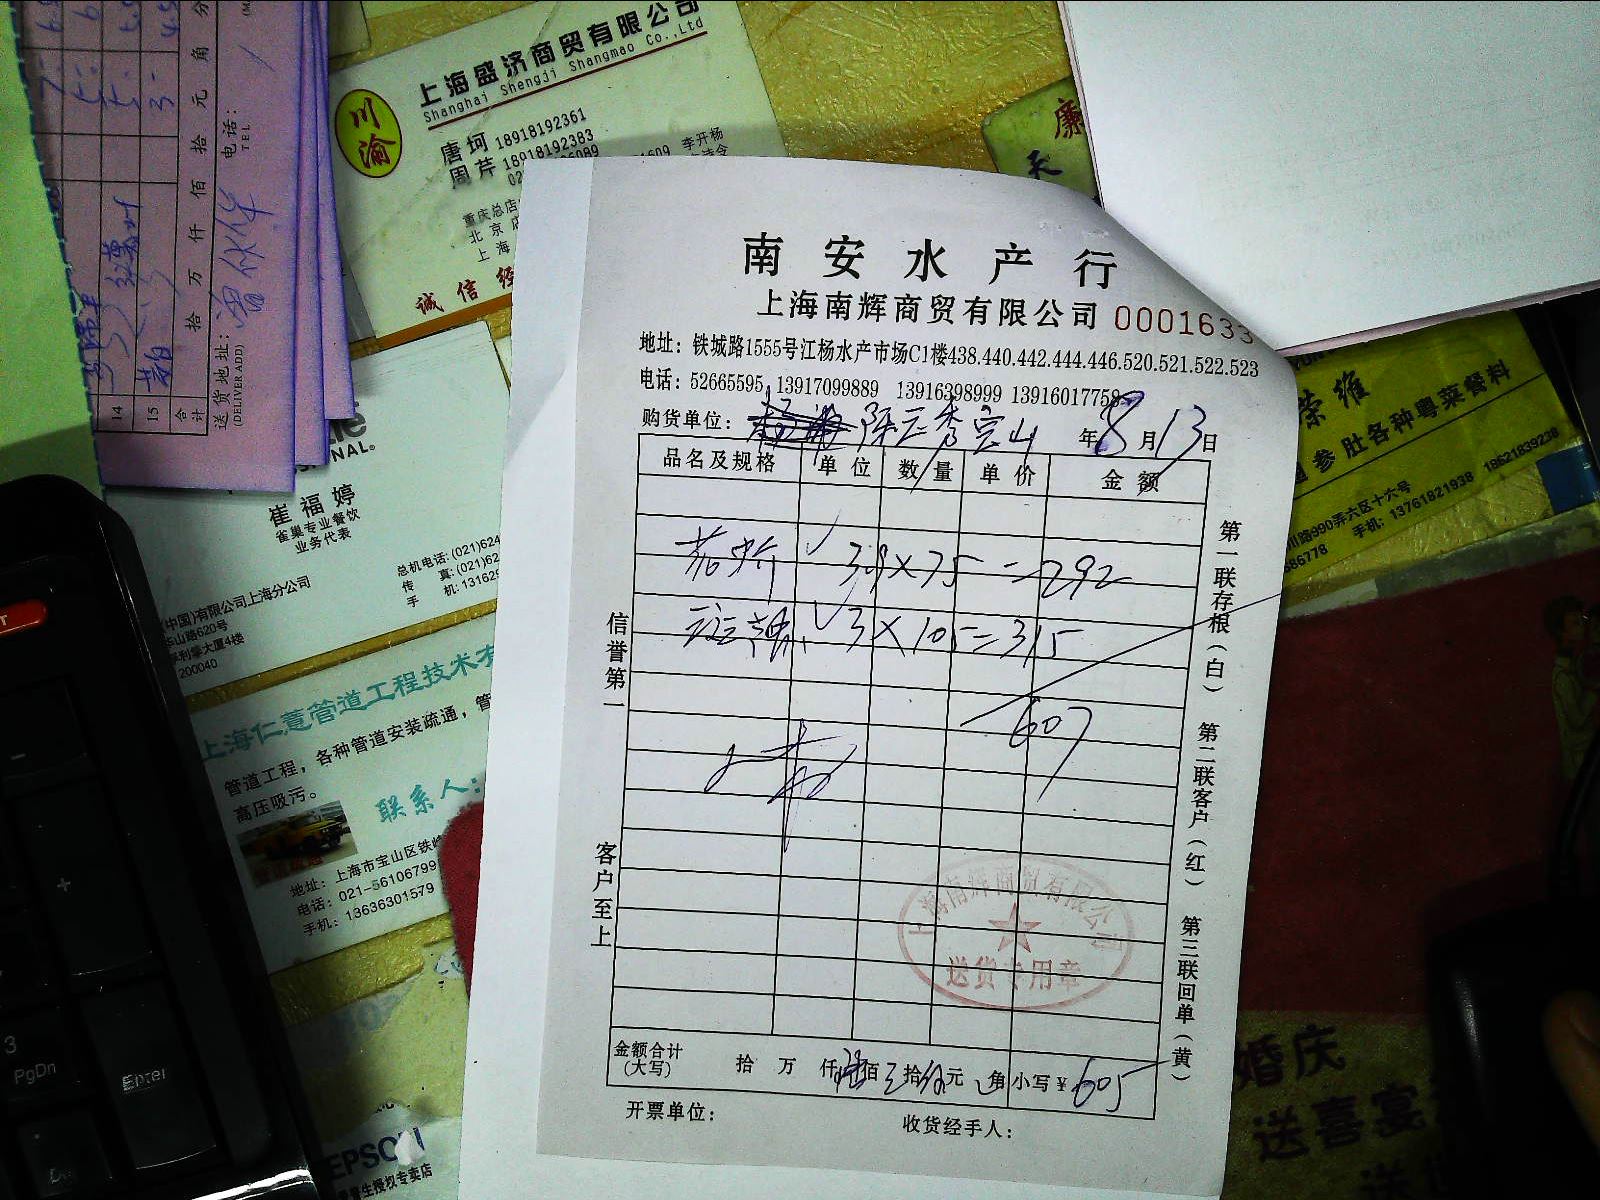 上海盛济商贸有限公司
Shanghai Shengji Shangmao Co.,Ltd
川渝
唐 珂 18918192361
周 芹 18918192383
李开杨
重庆总店
北 京
上 海
诚 信 经
14
15
合计
拾 万 仟 佰 拾 元 角 分
送货地址:
(DELIVER ADD)
电话:
TEL
崔 福 婷
雀巢专业餐饮
业务代表
总机电话:(021)624
传 真:(021)62
手 机:13162
(中国)有限公司上海分公司
华山路620号
大厦4楼
200040
上海仁薏管道工程技术有
管道工程,各种管道安装疏通,管
高压吸污。
联系人:
地址:上海市宝山区铁
电话:021-56106799
手机:13636301579
EPSON
生授权专卖店
+
Enter
3
PgDn
南安水产行
上海南辉商贸有限公司 0001633
地址:铁城路1555号江杨水产市场C1楼438.440.442.444.446.520.521.522.523
电话:52665595 13917099889 13916398999 13916017758
购货单位: 年 8 月 13 日
品名及规格 单位 数量 单价 金额
3.9×75=292
3×105=315
607
信誉第一
客户至上
第一联存根(白) 第二联客户(红) 第三联回单(黄)
上海南辉商贸有限公司
送货专用章
金额合计
(大写)
拾 万 仟 陆 佰 拾 伍 元 角 小写¥ 605
开票单位:
收货经手人:
荣 维
参肚各种粤菜餐料
川路990弄六区十六号
手机: 13761821938 18621839238
586778
婚庆
送喜宴